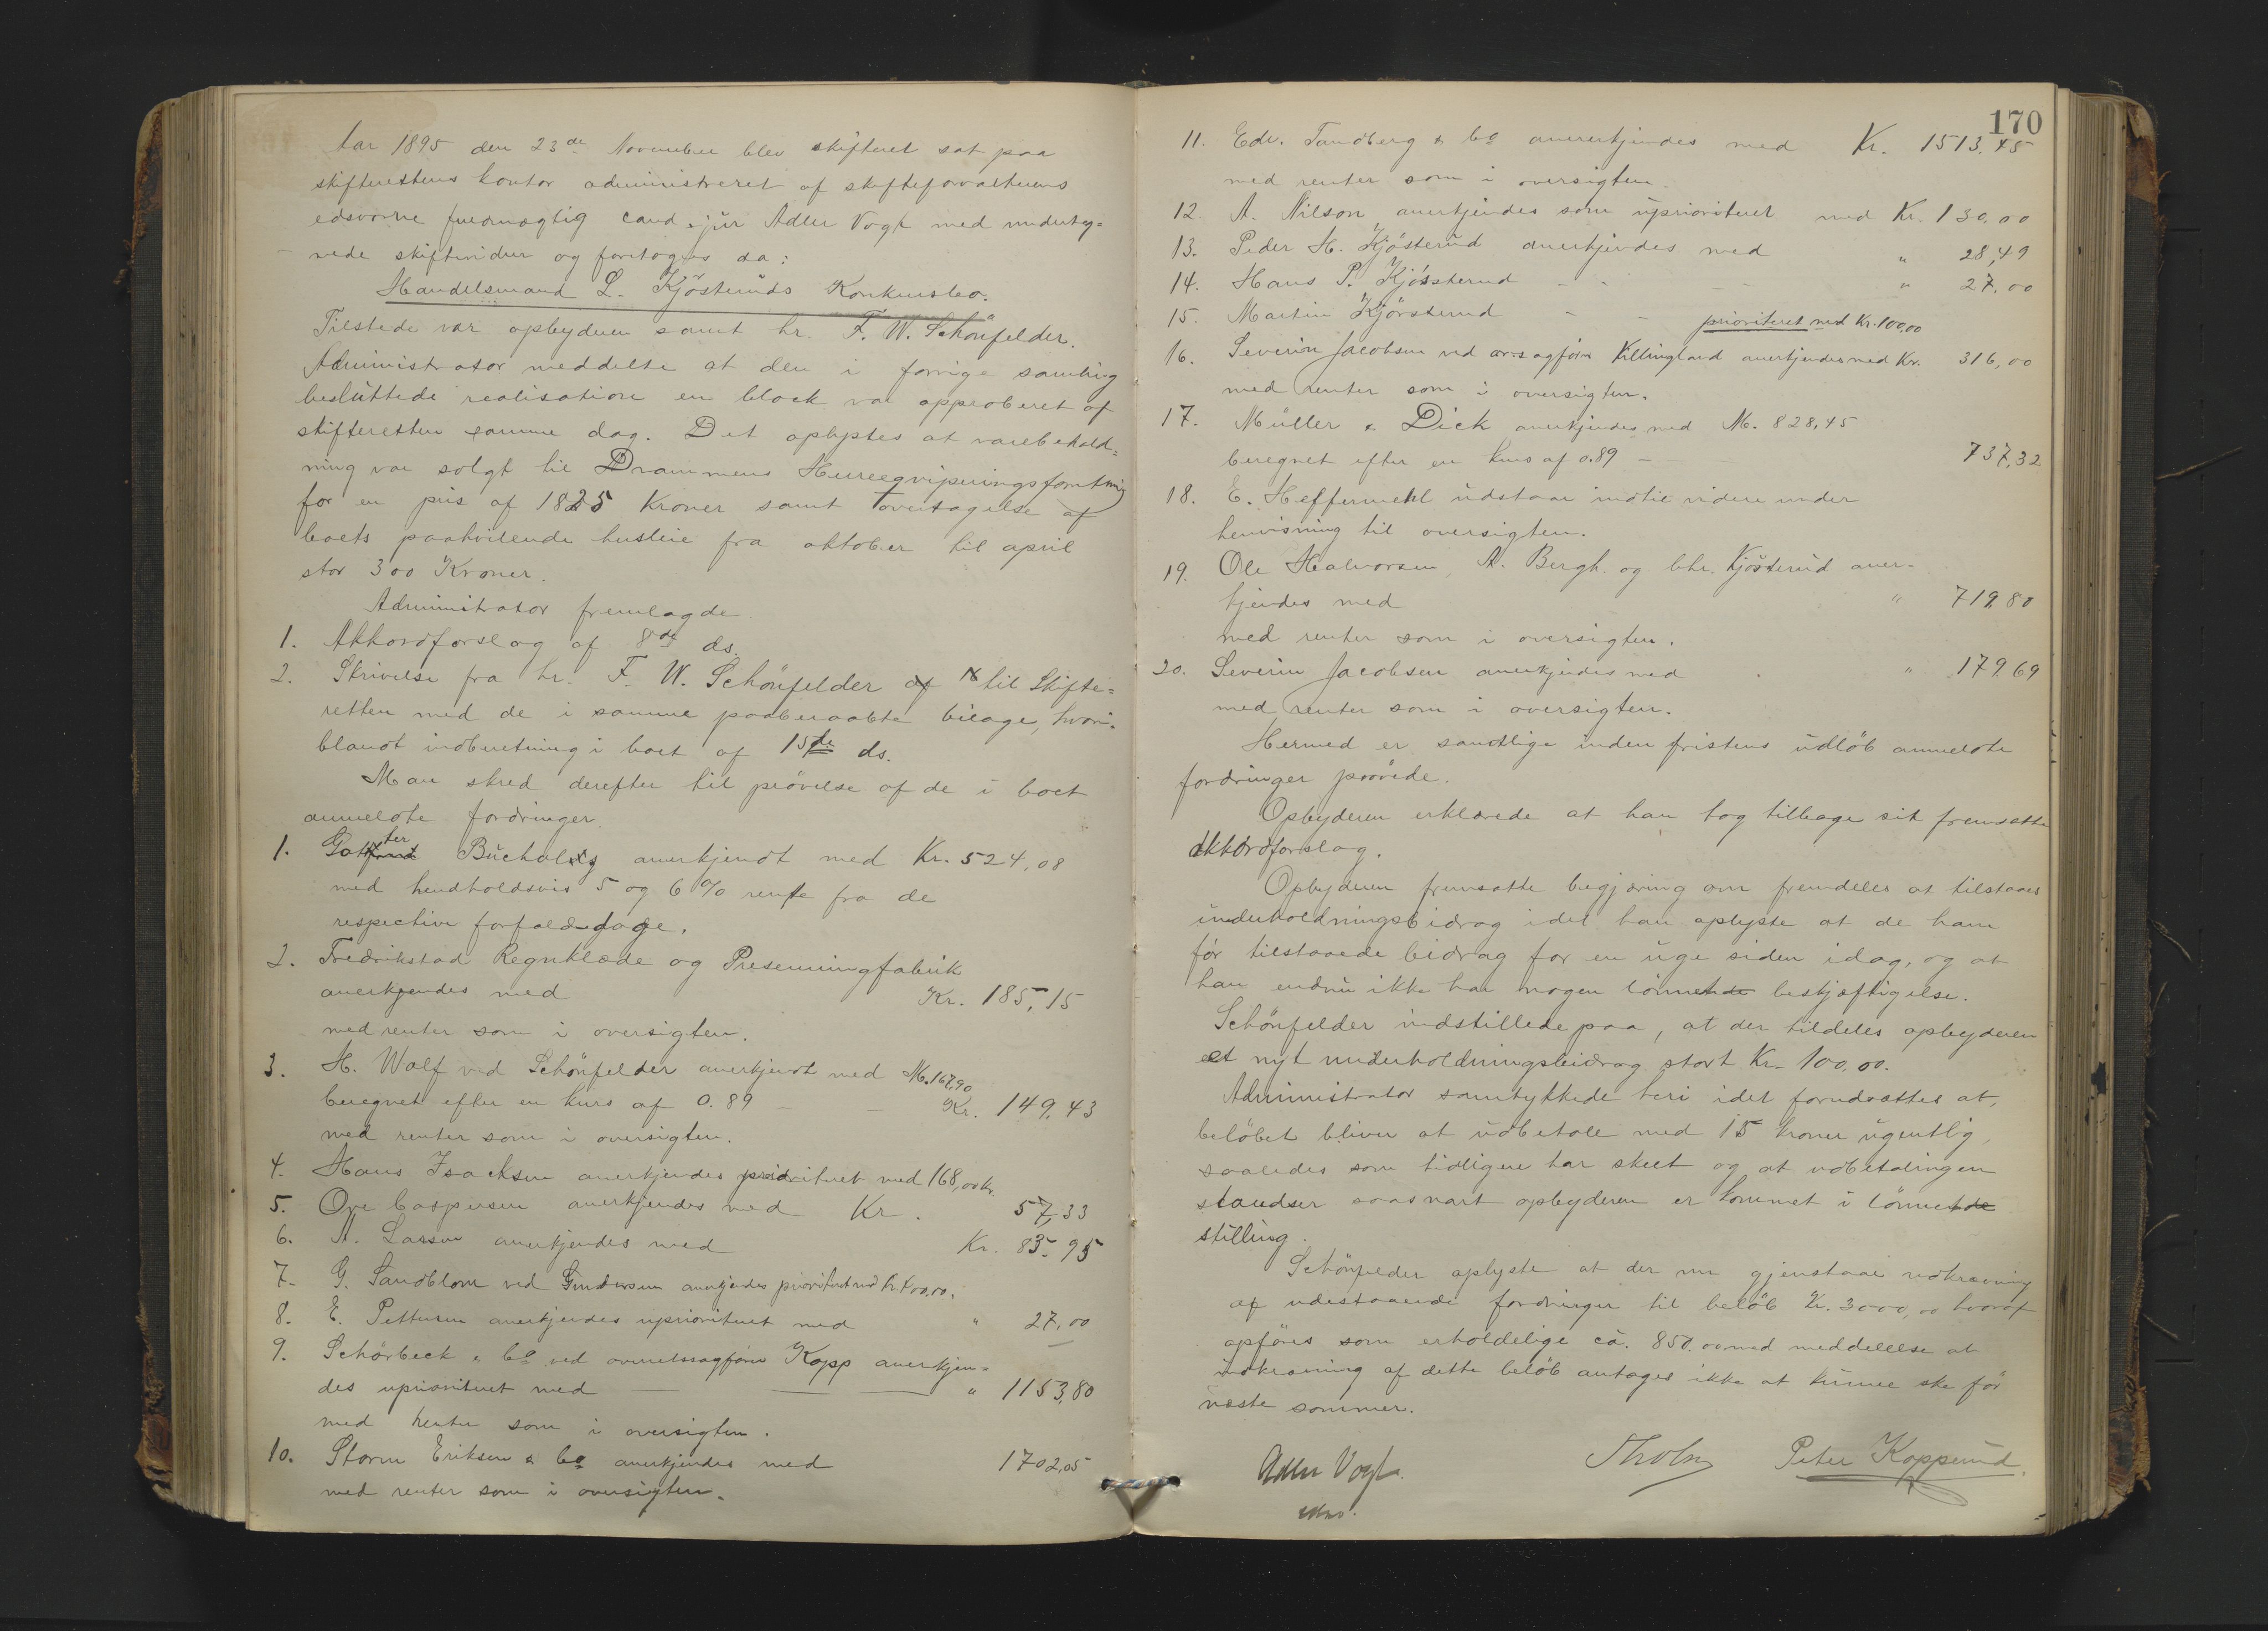 Aar 1895 den 23de November blev skifteret sat paa
skifterettens kontor administreret af skifteforvalterens
edsvorne fuldmægtig cand. jur Adler Vogt med underteg=
nede skiftevidner og foretoges da:
Handelsmand L. Kjösteruds Konkursbo.
Tilstede var opbyderen samt hr. F. W. Schönfelder.
Administrator meddelte at den i forrige samling
besluttede realisation en block var approberet af
skifteretten samme dag. Det oplystes at varebehold=
ning var solgt til Drammens Herreeqviperingsforretning
for en pris af 1825 Kroner samt overtagelse af
boets paahvilende husleie fra oktober til april
stor 300 Kroner.
Administrator fremlagde
1. Akkordforslag af 8de ds.
2. Skrivelse fra hr. F. W. Schönfelder til Skifte=
retten med de i samme paaberaabte bilage, hvori-
blandt indberetning i boet af 15de ds.
Man skred derefter til prövelse af de i boet
anmeldte fordringer.
1. Bucholtz anerkjendt med Kr. 524,08
med henholdsvis 5 og 6% rente fra de
respective forfaldsdage.
2. Fredrikstad Regnklæde og Presenningfabrik
anerkjendes med Kr. 185,15
med renter som i oversigten.
3. H. Wolf ved Schönfelder anerkjendt med M. 167,90
beregnet efter en kurs af 0.89 – – Kr. 149,43
med renter som i oversigten.
4. Hans Isacksen anerkjendes prioriteret med 168,00 kr.
5. Ove Caspersen anerkjendes med Kr. 57,33
6. A. Larsen anerkjendes med Kr. 85,95
7. G. Sandblom ved Gundersen anerkjendes prioriteret med kr. 400,00.
8. E. Pettersen anerkjendes uprioriteret med " 27,00
9. Schörbeck & Co ved overretssagförer Kopp anerkjen=
des uprioriteret med " 1153,80
med renter som i oversigten.
10. Storm Eriksen & Co anerkjendes med 1702,05
med renter som i oversigten.
170
11. Edv. Tandberg & Co anerkjendes med Kr. 1513,45
med renter som i oversigten.
12. A. Nilson anerkjendes som uprioriteret med Kr. 130,00
13. Peder H. Kjösterud anerkjendes med " 28,49
14. Hans P. Kjösterud - - - " 27,00
15. Martin Kjösterud - - prioriteret med Kr. 100,00
16. Severin Jacobsen ved or.sagförer Killingland anerkjendes med Kr. 316,00
med renter som i oversigten.
17. Müller & Dick anerkjendes med M. 828,45
beregnet efter en kurs af 0.89 – 737,32
18. E. Heffermehl udstaar indtil videre under
henvisning til oversigten.
19. Ole Halvorsen, A. Bergh. og Chr. Kjösterud aner-
kjendes med " 719,80
med renter som i oversigten.
20. Severin Jacobsen anerkjendes med " 179,69
med renter som i oversigten.
Hermed er samtlige inden fristens udlöb anmeldte
fordringer prövede.
Opbyderen erklærede at han tog tilbage sit fremsatte
akkordforslag.
Opbyderen fremsatte begjæring om fremdeles at tilstaaes
underholdningsbidrag idet han oplyste at de ham
för tilstaaede bidrag for en uge siden idag, og at
han endnu ikke har nogen lönnet beskjæftigelse.
Schönfelder indstillede paa, at der tildeles opbyderen
et nyt underholdningsbidrag stort Kr. 100.00.
Administrator samtykkede heri idet forudsættes at,
belöbet bliver at udbetale med 15 kroner ugentlig,
saaledes som tidligere har skeet og at udbetalingen
standser saasnart opbyderen er kommet i lönnet
stilling.
Schönfelder oplyste at der nu gjenstaar indkrævning
af udestaaende fordringer til belöb Kr. 3000,00 hvoraf
opföres som erholdelige ca. 850.00 med meddelelse at
indkrævning af dette belöb antages ikke at kunne ske för
næste sommer.
Adler Vogt.
edsv.
Peter Kopperud.